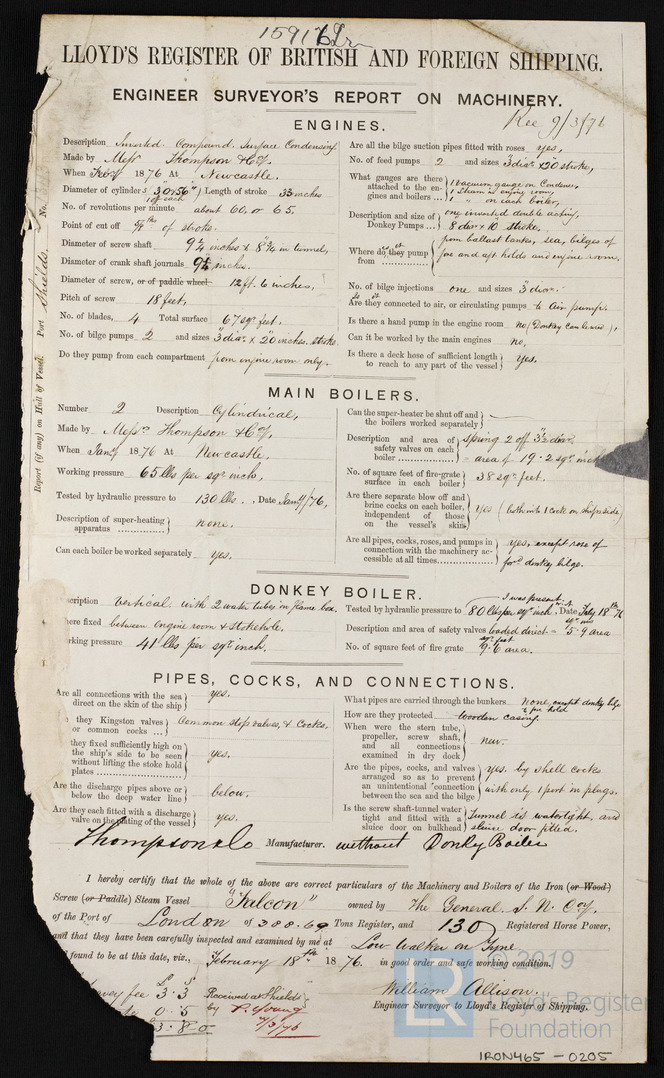 15917
LLOYD'S REGISTER OF BRITISH AND FOREIGN SHIPPING.
ENGINEER SURVEYOR'S REPORT ON MACHINERY.
Rec 9/3/76
ENGINES.
Description Inverted Compound Surface Condensing
Made by Messrs Thompson & Coy.
When Feby 1876 At Newcastle.
Diameter of cylinders 30 & 56" Length of stroke 33 inches
1 off each
No. of revolutions per minute about 60. or 65.
Point of cut off of stroke.
Diameter of screw shaft 9¼ inches & 8¾ in tunnel,
Diameter of crank shaft journals 9¼ inches.
Diameter of screw, or of paddle wheel 12 ft. 6 inches,
Pitch of screw 18 feet,
No. of blades, 4 Total surface 67 sqr feet.
No. of bilge pumps 2 and sizes 3" diar. x 20 inches. stroke
Do they pump from each compartment from engine room only.
Are all the bilge suction pipes fitted with roses yes,
No. of feed pumps 2 and sizes 3" diar. x 20" stroke,
What gauges are there attached to the engines and boilers ... 1 vacuum gauge on Condenser, 1 Steam in engine room, 1 " on each boiler,
Description and size of Donkey Pumps ... one inverted double acting, 8 diar x 10 stroke.
Where do they pump from from ballast tanks, sea, bilges of fore and aft holds and engine room.
No. of bilge injections one and sizes 3" diar.
Are they connected to air, or circulating pumps to Air pump.
Is there a hand pump in the engine room no (Donkey can be used),
Can it be worked by the main engines no,
Is there a deck hose of sufficient length to reach to any part of the vessel yes,
Report (if any) on Hull of Vessel. Port Shields. No.
MAIN BOILERS.
Number 2 Description Cylindrical,
Made by Messrs Thompson & Coy,
When Jany 1876 At Newcastle.
Working pressure 65 lbs per sqr inch,
Tested by hydraulic pressure to 130 lbs. , Date Jany /76,
Description of super-heating apparatus none.
Can each boiler be worked separately yes.
Can the super-heater be shut off and the boilers worked separately —
Description and area of safety valves on each boiler spring 2 off 3½ diar. = area of 19.2 sqr. inch
No. of square feet of fire-grate surface in each boiler 38 sqr. feet.
Are there separate blow off and brine cocks on each boiler, independent of those on the vessel's skin yes (both into 1 cock on ship side)
Are all pipes, cocks, roses, and pumps in connection with the machinery accessible at all times yes, except rose of forwd donkey bilge.
DONKEY BOILER.
scription Vertical. with 2 water tubes in flame box.
here fixed between engine room & stokehole.
rking pressure 41 lbs per sqr inch.
I was present.
Tested by hydraulic pressure to 80 lbs per sqr inch, Date Feby 18th 76
Description and area of safety valves loaded direct = 5.9 area
No. of square feet of fire grate 9.6 area.
PIPES, COCKS, AND CONNECTIONS.
Are all connections with the sea direct on the skin of the ship yes.
they Kingston valves or common cocks Common stop valves, & Cocks,
they fixed sufficiently high on the ship's side to be seen without lifting the stoke hold plates yes.
Are the discharge pipes above or below the deep water line below.
Are they each fitted with a discharge valve on the plating of the vessel yes.
What pipes are carried through the bunkers none, except donkey bilge to fore hold
How are they protected wooden casing.
When were the stern tube, propeller, screw shaft, and all connections examined in dry dock new.
Are the pipes, cocks, and valves arranged so as to prevent an unintentional connection between the sea and the bilge yes. by shell cocks with only 1 port in plugs.
Is the screw shaft-tunnel water tight and fitted with a sluice door on bulkhead Tunnel is watertight, and sluice door fitted.
Thompson & Co Manufacturer. without Donkey Boiler
I hereby certify that the whole of the above are correct particulars of the Machinery and Boilers of the Iron (or Wood)
Screw (or Paddle) Steam Vessel "Falcon" owned by The General S. N. Coy.
of the Port of London of 388.69 Tons Register, and 130 Registered Horse Power,
and that they have been carefully inspected and examined by me at Low Walker on Tyne
found to be at this date, viz., February 18th 1876. in good order and safe working condition.
William Allison.
Engineer Surveyor to Lloyd's Register of Shipping.
vey fee 3.3
0.5
3.8.0
Received at Shields
by P. Young
7/3/76
LR
© 2019
Lloyd's Register
Foundation
IRON465-0205